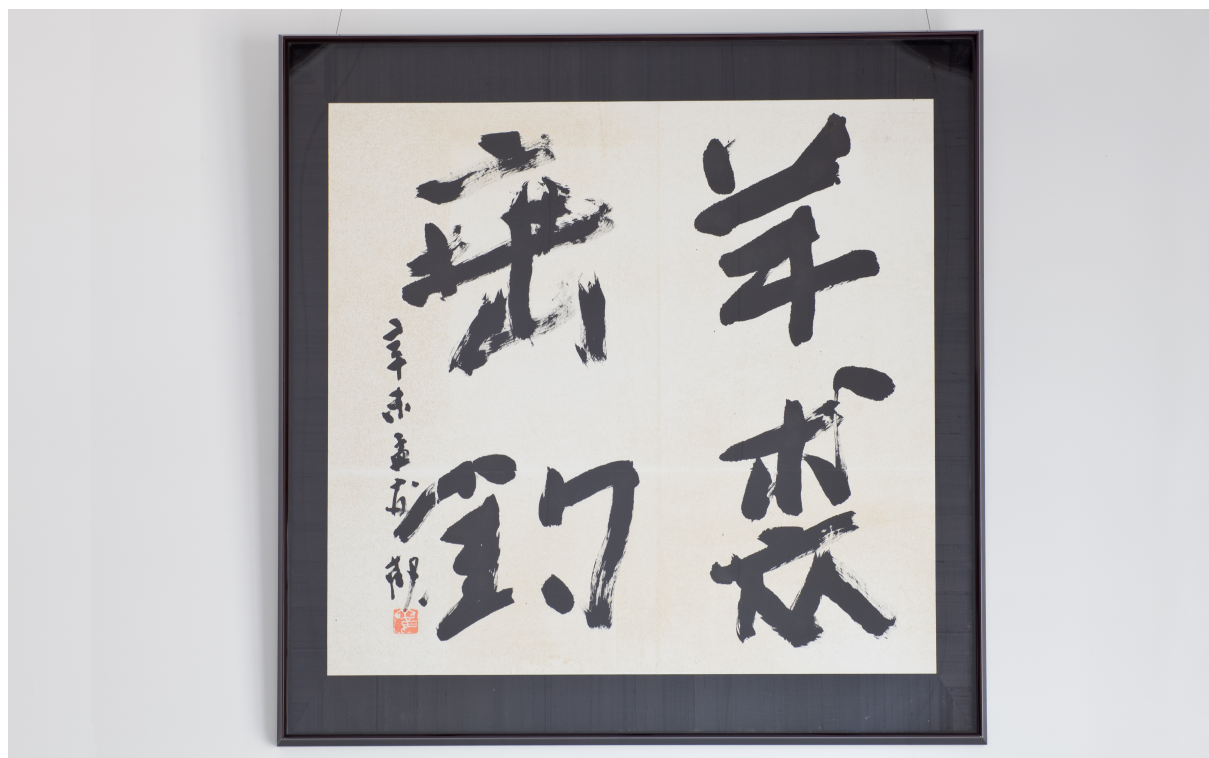 羊裘
垂釣
辛未孟春